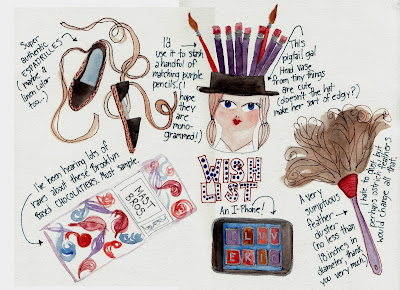 Super
authentic
ESPADRILLES
(maybe a
linen color
too...)
I'd
use it to stash
a handful of
matching purple
pencils. (I
hope
they
are
mono-
grammed!)
This
pigtail gal
Head vase
from tiny things
are cute.
(doesn't the hat
make her sort of edgy?)
I've been hearing lots of
raves about these Brooklyn
based CHOCOLATIERS. Must sample.
MAST
BROS
WISH
LIST
An I-Phone!
A very
sumptuous
feather
duster
(no less than
18 inches in
diameter, thank
you very much.)
I hate to dust, but
perhaps ostrich feathers
would change all that.